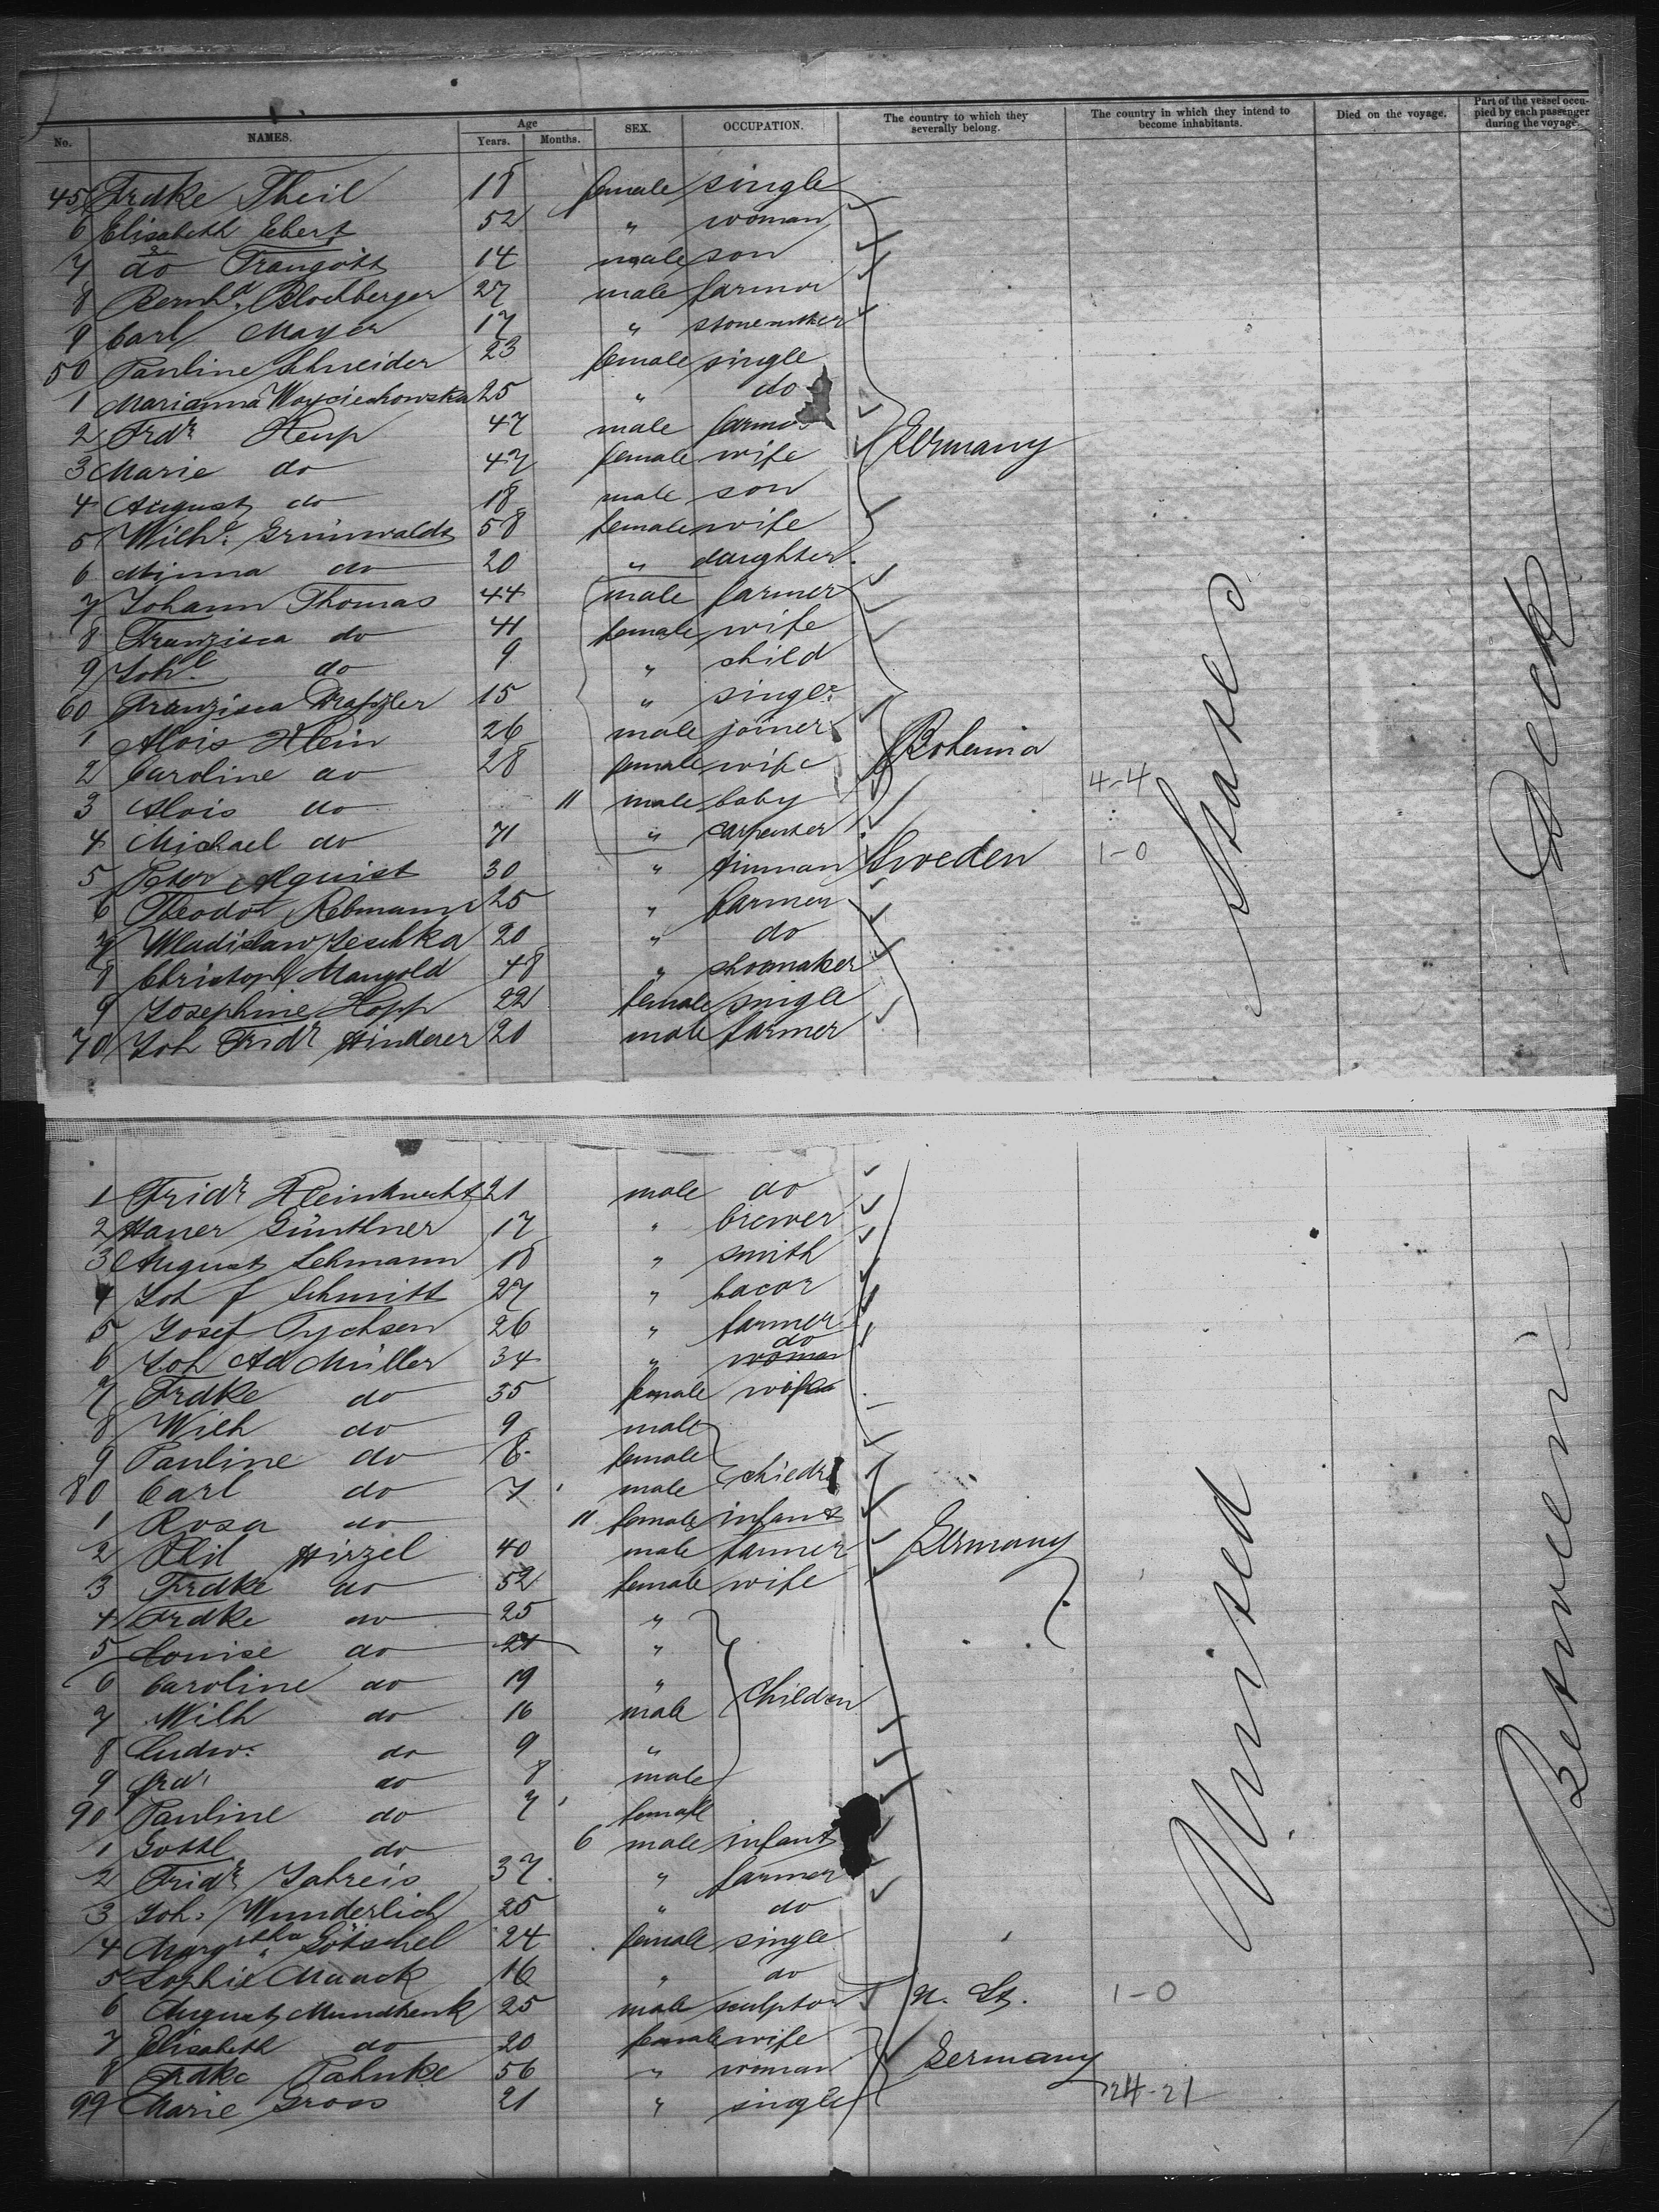 No. NAMES. Age Years. Months. SEX. OCCUPATION. The country to which they severally belong. The country in which they intend to become inhabitants. Died on the voyage. Part of the vessel occupied by each passenger during the voyage.
45 Frdke Theil 18 female single
6 Elisabeth Ebert 52 " woman
7 do Traugott 14 male son
8 Bernhd. Blochberger 27 male farmer
9 Carl Mayer 17 "
50 Pauline Schneider 23 female single
1 Marianna Woyciechowska 25 " do
2 Frdr Heup 47 male farmer
3 Marie do 47 female wife Germany
4 August do 18 male son
5 Wilhe. Grünwaldt 58 female wife
6 Minna do 20 " daughter
7 Johann Thomas 44 male farmer
8 Franzisca do 41 female wife
9 Joh. do 9 " child
60 Franzisca 15 " single
1 Alois Klein 26 male joiner
2 Caroline do 28 female wife Bohemia
3 Alois do 11 male baby 4-4
4 Michael do 71 " carpenter
5 Peter Alquist 30 " tinman Sweden 1-0
6 Theodor Rebmann 25 " farmer
7 Wladislaw Jeschka 20 " do
8 Christoph Mangold 48 " shoemaker
9 Josephine Hopp 22 female single
70 Joh Fridr Hinderer 20 male farmer
States
Deck
1 Fridr Kleinknecht 21 male do
2 Xaver Günthner 17 " brewer
3 August Lehmann 18 " smith
4 Joh f Schmitt 27 " bacar
5 Josef Tychsen 26 " farmer
6 Joh Ad Müller 34 " woman do
7 Frdke do 35 female wife
8 Wilh do 9 male
9 Pauline do 8 female
80 Carl do 7 male
1 Rosa do 11 female infant
2 Phil Hirzel 40 male farmer Germany
3 Frdke do 52 female wife
4 Frdke do 25 "
5 Louise do 21 "
6 Caroline do 19 " Children
7 Wilh do 16 male
8 Ludw. do 9 "
9 Frdr do 8 male
90 Pauline do 7 female
1 Gottl do 6 male infant
2 Fridr Jahreis 37 " farmer
3 Joh. Wunderlich 25 " do
4 Margetha Götschel 24 female single
5 Sophie Maack 16 " do
6 August Mundhenk 25 male sculptor U. St. 1-0
7 Elisabeth do 20 female wife
8 Frdke Pahnke 56 " woman Germany
99 Marie Gross 21 " single 724-21
United
Between